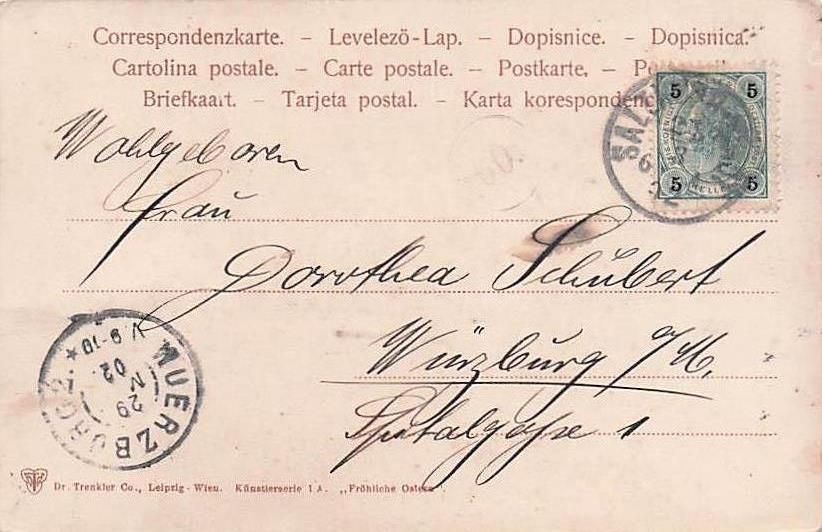 Correspondenzkarte. – Levelezö-Lap. – Dopisnice. – Dopisnica.
Cartolina postale. – Carte postale. – Postkarte. –
Briefkaart. – Tarjeta postal. – Karta korespondenc
5 5
5 5
HELLER
SALZ
Wohlgeboren
Frau
Dorothea Schubert
Würzburg a/M.
Spitalgasse 1
WUERZBURG 2. *
29 IV 02.
V 9-10
Dr. Trenkler Co., Leipzig - Wien. Künstlerserie 1 A. „Fröhliche Ostern"